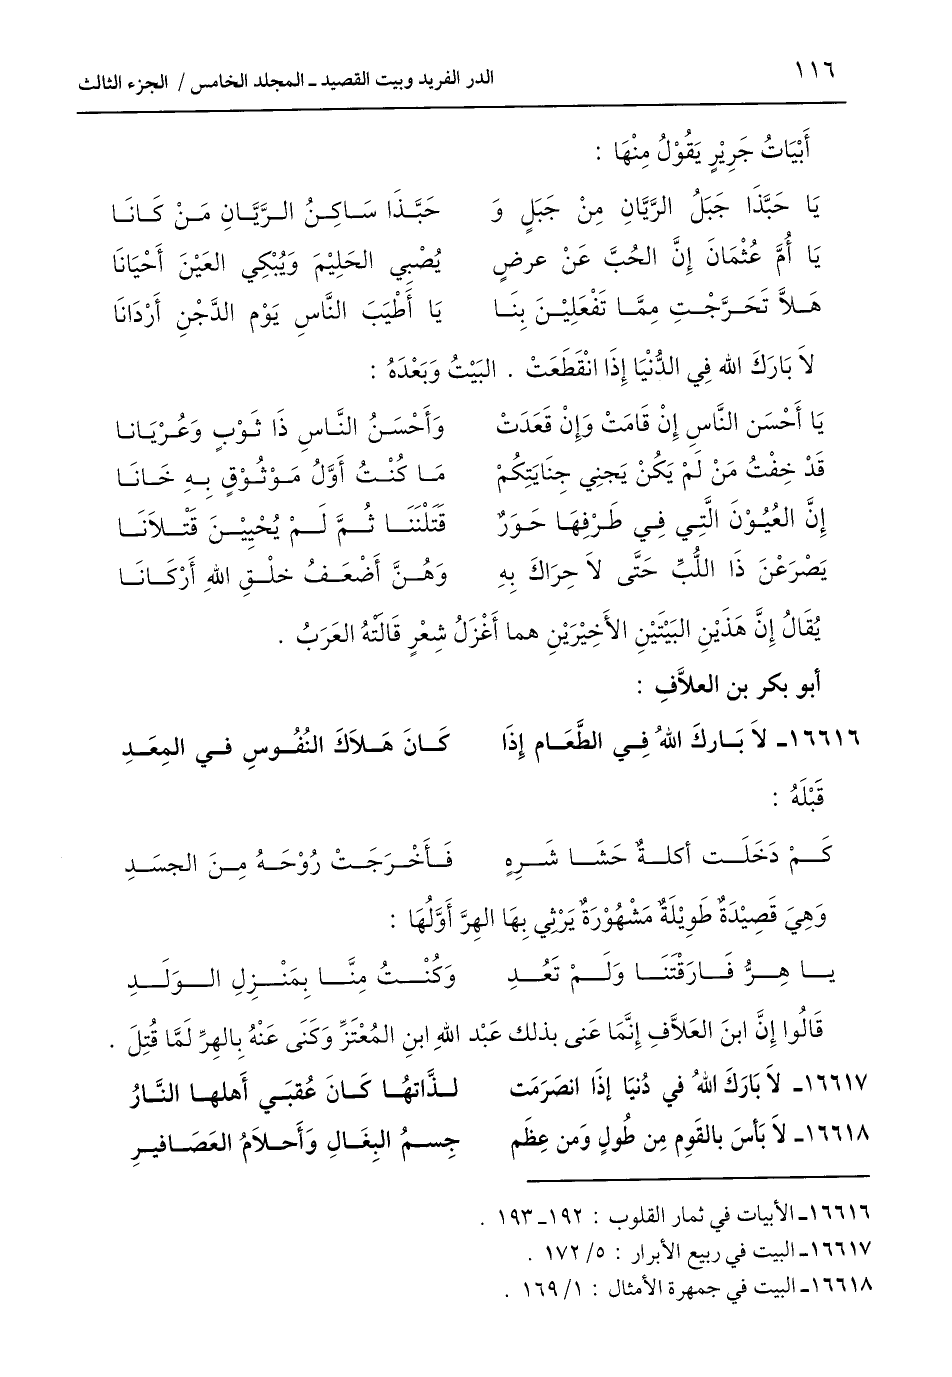 ١١٦ الدر الفريد وبيت القصيد ـ المجلد الخامس / الجزء الثالث
أَبْيَاتُ جَرِيْرٍ يَقُوْلُ مِنْهَا :
يَا حَبَّذَا جَبَلُ الرَّيَّانِ مِنْ جَبَلٍ وَ حَبَّـذَا سَاكِـنُ الـرَّيَّـانِ مَـنْ كَـانَـا
يَا أُمَّ عُثْمَانَ إِنَّ الحُبَّ عَنْ عرضٍ يُصْبِي الحَلِيْمَ وَيُبْكِي العَيْنَ أَحْيَانَا
هَـلاَّ تَحَـرَّجْـتِ مِمَّـا تَفْعَلِيْـنَ بِنَـا يَا أَطْيَبَ النَّاسِ يَوْم الدَّجْنِ أَرْدَانَا
لاَ بَارَكَ الله فِي الدُّنْيَا إِذَا انْقَطَعَتْ . البَيْتُ وَبَعْدَهُ :
يَا أَحْسَن النَّاسِ إِنْ قَامَتْ وَإِنْ قَعَدَتْ وَأَحْسَـنُ النَّـاسِ ذَا ثَـوْبٍ وَعُـرْيَـانـا
قَدْ خِفْتُ مَنْ لَمْ يَكُنْ يَجنِي جِنَايَتِكُمْ مَـا كُنْـتُ أَوَّلُ مَـوْثُـوْقٍ بِـهِ خَـانَـا
إِنَّ العُيُـوْنَ الَّتِـي فِـي طَـرْفِهَـا حَـوَرٌ قَتَلْنَنَـا ثُـمَّ لَـمْ يُحْيِيْـنَ قَتْـلاَنَـا
يَصْرَعْنَ ذَا اللُّبِّ حَتَّى لاَ حِرَاكَ بِهِ وَهُـنَّ أَضْعَـفُ خلْـقِ اللهِ أَرْكَـانَـا
يُقَالُ إِنَّ هَذَيْنِ البَيْتَيْنِ الأَخِيْرَيْنِ هما أَغْزَلُ شِعْرٍ قَالَتْهُ العَرَبُ .
أبو بكر بن العلاَّفِ :
١٦٦١٦ـ لاَ بَـارَكَ اللهُ فِـي الطَّعَـامِ إِذَا كَـانَ هَـلاَكَ النُّفُـوسِ فـي المِعَـدِ
قَبْلَهُ :
كَـمْ دَخَلَـت أكلـةٌ حَشَـا شَـرِهٍ فَـأَخْـرَجَـتْ رُوْحَـهُ مِـنَ الجسَـدِ
وَهِيَ قَصِيْدَةٌ طَوِيْلَةٌ مَشْهُوْرَةٌ يَرْثِي بِهَا الهِرَّ أَوَّلُهَا :
يـا هِـرُّ فَـارَقْتَنَـا وَلَـمْ تَعُـدِ وَكُنْـتُ مِنَّـا بِمَنْـزِلِ الـوَلَـدِ
قَالُوا إِنَّ ابنَ العَلاَّفِ إِنَّمَا عَنى بذلك عَبْد اللهِ ابنِ المُعْتَزِّ وَكَنَى عَنْهُ بِالهِرِّ لَمَّا قُتِلَ .
١٦٦١٧ـ لاَ بَارَكَ اللهُ في دُنيَا إِذَا انصَرَمَت لـذَّاتهُـا كَـانَ عُقبَـي أَهلهـا النَّـارُ
١٦٦١٨ـ لاَ بَأسَ بالقَومِ مِن طُولٍ وَمن عِظَمٍ جِسـمُ البغَـالِ وَأَحـلاَمُ العَصَـافيـرِ
١٦٦١٦ـ الأبيات في ثمار القلوب : ١٩٢ـ١٩٣ .
١٦٦١٧ـ البيت في ربيع الأبرار : ٥/ ١٧٢ .
١٦٦١٨ـ البيت في جمهرة الأمثال : ١/ ١٦٩ .